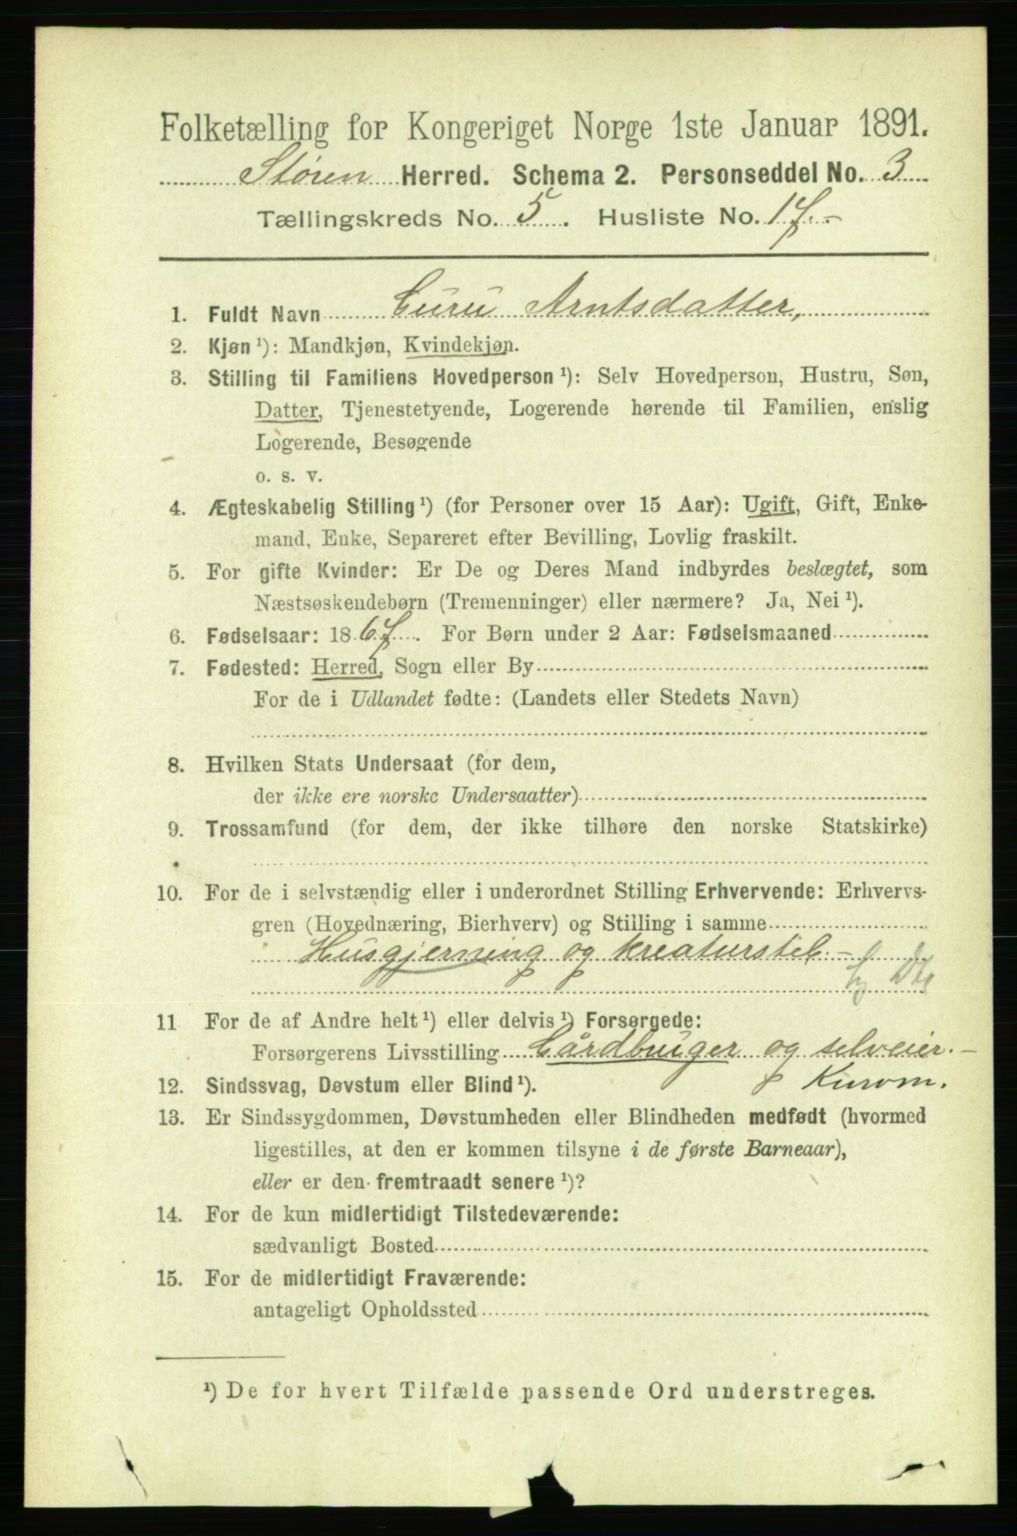 Folketælling for Kongeriget Norge 1ste Januar 1891.
Støren Herred. Schema 2. Personseddel No. 3
Tællingskreds No. 5. Husliste No. 17.-
1. Fuldt Navn Guru Arntsdatter,
2. Kjøn ¹): Mandkjøn, Kvindekjøn.
3. Stilling til Familiens Hovedperson ¹): Selv Hovedperson, Hustru, Søn,
Datter, Tjenestetyende, Logerende hørende til Familien, enslig
Logerende, Besøgende
o. s. v.
4. Ægteskabelig Stilling ¹) (for Personer over 15 Aar): Ugift, Gift, Enke-
mand, Enke, Separeret efter Bevilling, Lovlig fraskilt.
5. For gifte Kvinder: Er De og Deres Mand indbyrdes beslægtet, som
Næstsøskendebørn (Tremenninger) eller nærmere? Ja, Nei ¹).
6. Fødselsaar: 1867. For Børn under 2 Aar: Fødselsmaaned
7. Fødested: Herred, Sogn eller By
For de i Udlandet fødte: (Landets eller Stedets Navn)
8. Hvilken Stats Undersaat (for dem,
der ikke ere norske Undersaatter)
9. Trossamfund (for dem, der ikke tilhøre den norske Statskirke)
10. For de i selvstændig eller i underordnet Stilling Erhvervende: Erhvervs-
gren (Hovednæring, Bierhverv) og Stilling i samme
Husgjerning og kreaturstel.-
11 For de af Andre helt ¹) eller delvis ¹) Forsørgede:
Forsørgerens Livsstilling Gårdbruger og selveier.-
12. Sindssvag, Døvstum eller Blind ¹).
13. Er Sindssygdommen, Døvstumheden eller Blindheden medfødt (hvormed
ligestilles, at den er kommen tilsyne i de første Barneaar),
eller er den fremtraadt senere ¹)?
14. For de kun midlertidigt Tilstedeværende:
sædvanligt Bosted
15. For de midlertidigt Fraværende:
antageligt Opholdssted
¹) De for hvert Tilfælde passende Ord understreges.